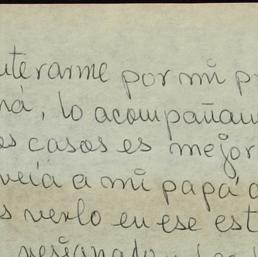 uterarme por mi p
ná, lo acompañam
os casos es mejor
veía a mi papá
s verlo en ese est
resignado